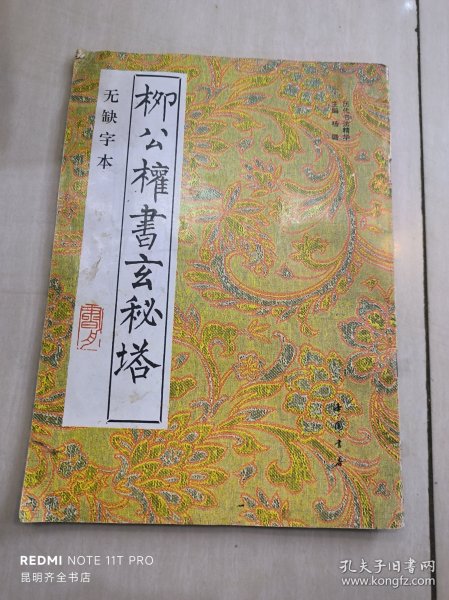 历代书法精华
主编 杨璐
无缺字本
柳公權書玄秘塔
中国书店
REDMI NOTE 11T PRO
昆明齐全书店
孔夫子旧书网
www.kongfz.com